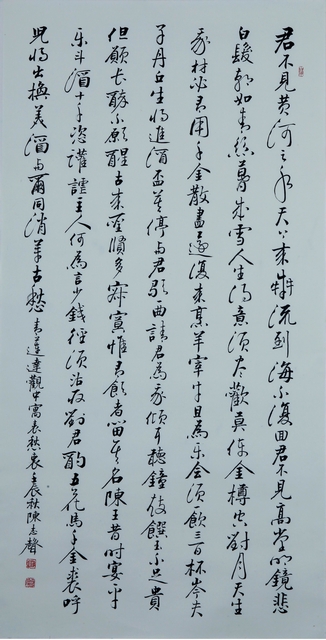 君不見黃河之水天上來犇流到海不復回君不見高堂明鏡悲
白髮朝如青絲暮成雪人生得意須盡歡莫使金樽空對月天生
我材必有用千金散盡還復來烹羊宰牛且為樂會須一飲三百杯岑夫
子丹丘生將進酒杯莫停與君歌一曲請君為我傾耳聽鐘鼓饌玉不足貴
但願長醉不願醒古來聖賢多寂寞惟有飲者留其名陳王昔時宴平
樂斗酒十千恣讙謔主人何為言少錢徑須沽取對君酌五花馬千金裘呼
兒將出換美酒與爾同消萬古愁 青蓮達觀中寓春愁衷壬辰秋陳志聲